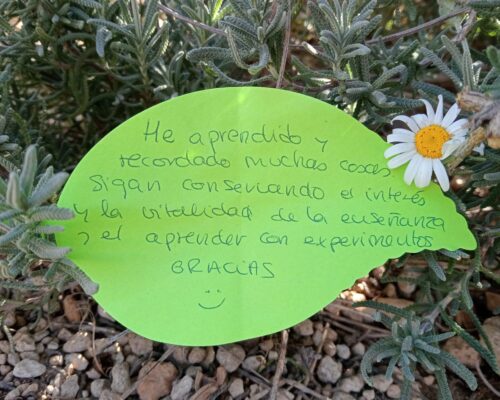 He aprendido y
recordado muchas cosas.
Sigan conservando el interés
y la vitalidad de la enseñanza
y el aprender con experimentos
GRACIAS
:)